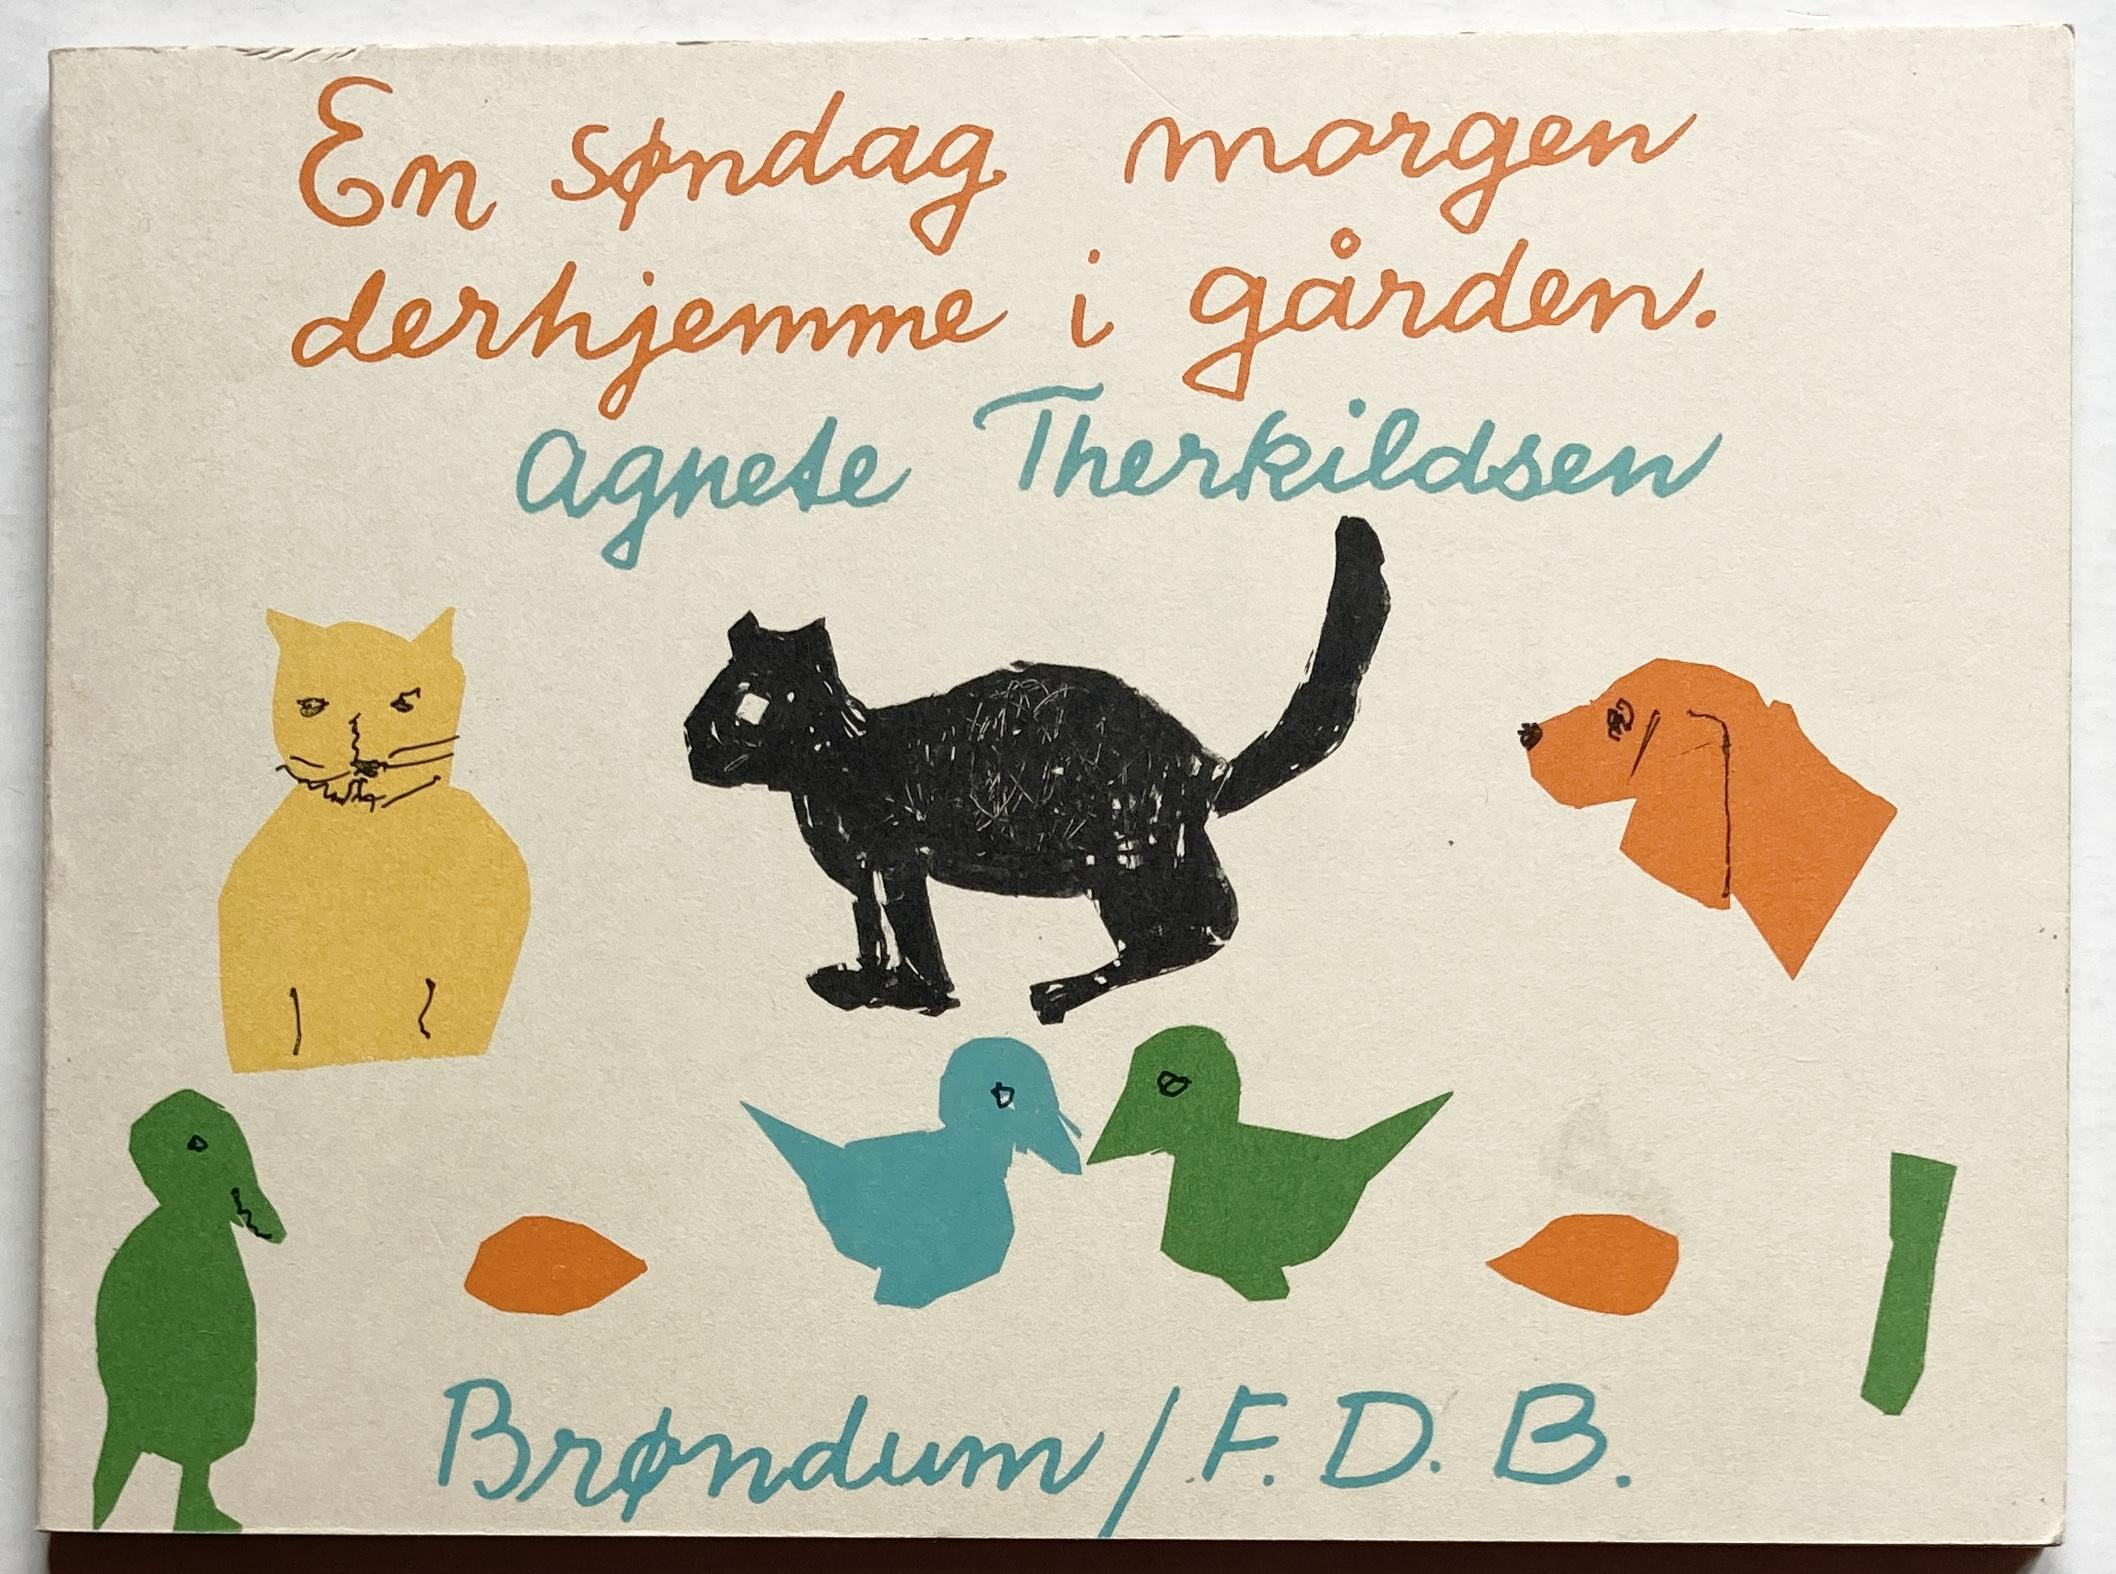 En søndag morgen
derhjemme i gården.
Agnete Therkildsen
Brøndum/F.D.B.